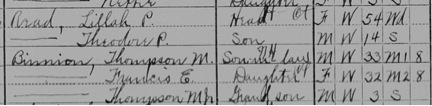 Daughter
Arad, Lillah P. Head F W 54 Wd
——— Theodore P. Son M W 14 S
Binnion, Thompson M. Son in law M W 33 M1 8
——— Frances E. Daughter F W 32 M2 8
——— Thompson M Jr Grandson M W 3 S